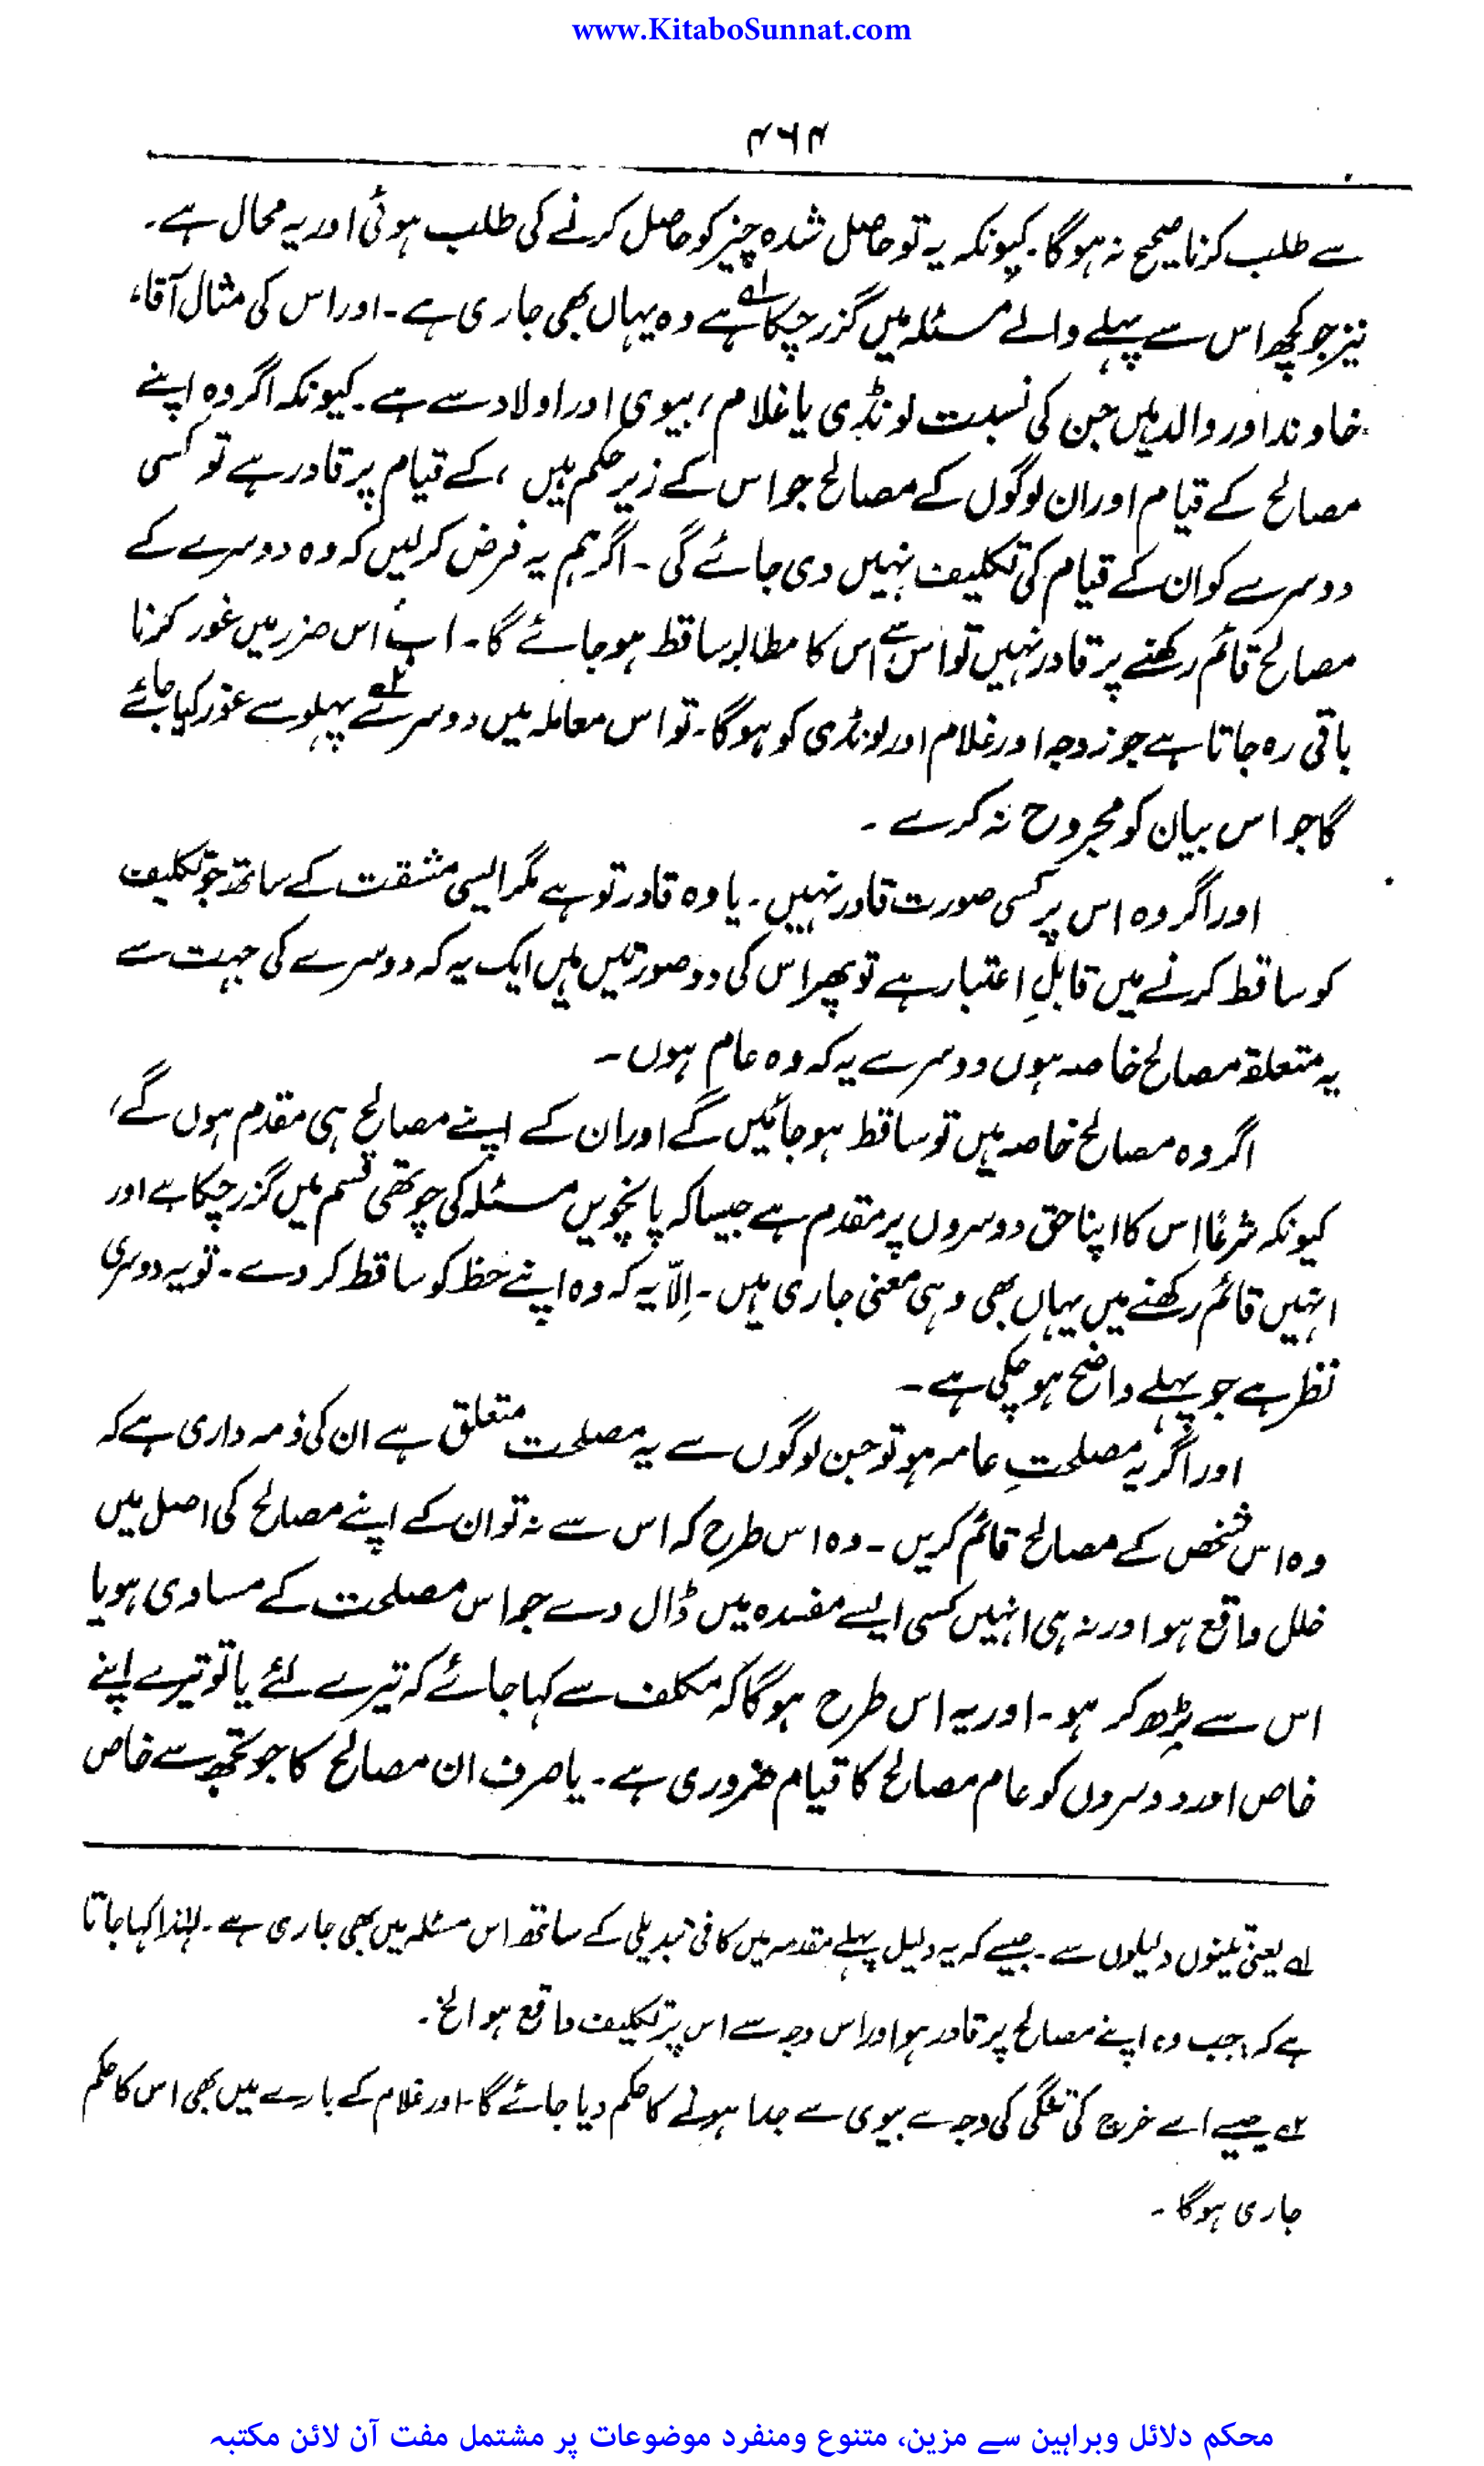 www.KitaboSunnat.com
۴۶۴
سے طلب کرنا صحیح نہ ہوگا۔ کیونکہ یہ تو حاصل شدہ چیز کو حاصل کرنے کی طلب ہوئی اور یہ محال ہے۔
نیز جو کچھ اس سے پہلے والے مسئلہ میں گزر چکا ہے۱؎ وہ یہاں بھی جاری ہے۔ اور اس کی مثال آقا،
خاوند اور والد ہیں جن کی نسبت لونڈی یا غلام، بیوی اور اولاد سے ہے۔ کیونکہ اگر وہ اپنے
مصالح کے قیام اور ان لوگوں کے مصالح جو اس کے زیر حکم ہیں، کے قیام پر قادر ہے تو کسی
دوسرے کو ان کے قیام کی تکلیف نہیں دی جائے گی۔ اگر ہم یہ فرض کر لیں کہ وہ دوسرے کے
مصالح قائم رکھنے پر قادر نہیں تو اس سے اس کا مطالبہ ساقط ہو جائے گا۔ اب اس ضرر میں غور کرنا
باقی رہ جاتا ہے جو زوجہ اور غلام اور لونڈی کو ہوگا۔ تو اس معاملہ میں دوسرے۲؎ پہلو سے غور کیا جائے
گا جو اس بیان کو مجروح نہ کرے۔
اور اگر وہ اس پر کسی صورت قادر نہیں۔ یا وہ قادر تو ہے مگر ایسی مشقت کے ساتھ جو تکلیف
کو ساقط کرنے میں قابلِ اعتبار ہے تو پھر اس کی دو صورتیں ہیں ایک یہ کہ دوسرے کی جہت سے
یہ متعلقہ مصالح خاصہ ہوں دوسرے یہ کہ وہ عام ہوں۔
اگر وہ مصالح خاصہ ہیں تو ساقط ہو جائیں گے اور ان کے اپنے مصالح ہی مقدم ہوں گے،
کیونکہ شرعًا اس کا اپنا حق دوسروں پر مقدم ہے جیسا کہ پانچویں مسئلہ کی چوتھی قسم میں گزر چکا ہے اور
انہیں قائم رکھنے میں یہاں بھی وہی معنی جاری ہیں۔ اِلّا یہ کہ وہ اپنے حظ کو ساقط کر دے۔ تو یہ دوسری
نظر ہے جو پہلے واضح ہو چکی ہے۔
اور اگر یہ مصلحتِ عامہ ہو تو جن لوگوں سے یہ مصلحت متعلق ہے ان کی ذمہ داری ہے کہ
وہ اس شخص کے مصالح قائم کریں۔ وہ اس طرح کہ اس سے نہ تو ان کے اپنے مصالح کی اصل میں
خلل واقع ہو اور نہ ہی انہیں کسی ایسے مفسدہ میں ڈال دے جو اس مصلحت کے مساوی ہو یا
اس سے بڑھ کر ہو۔ اور یہ اس طرح ہوگا کہ مکلف سے کہا جائے کہ تیرے لئے یا تو تیرے اپنے
خاص اور دوسروں کو عام مصالح کا قیام ضروری ہے۔ یا صرف ان مصالح کا جو تجھ سے خاص
۱؎ یعنی تینوں دلیلوں سے۔ جیسے کہ یہ دلیل پہلے مقدمہ میں کافی تبدیلی کے ساتھ اس مسئلہ میں بھی جاری ہے۔ لہٰذا کہا جاتا
ہے کہ جب وہ اپنے مصالح پر قادر ہو اور اس وجہ سے اس پر تکلیف واقع ہو الخ۔
۲؎ جیسے اسے خرچ کی تنگی کی وجہ سے بیوی سے جدا ہونے کا حکم دیا جائے گا۔ اور غلام کے بارے میں بھی اس کا حکم
جاری ہوگا۔
محکم دلائل وبراہین سے مزین، متنوع ومنفرد موضوعات پر مشتمل مفت آن لائن مکتبہ